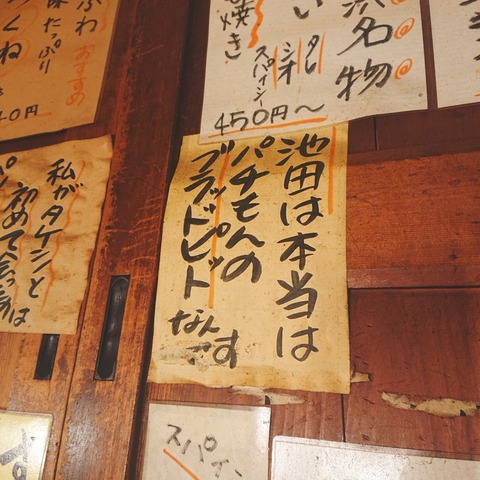 名物
タレ
シオ
スパイシー
焼き
450円〜
おすすめ
ふわ
味たっぷり
くね
40円
池田は本当は
パチもんの
ブラッドピット
なんです
私がタケシと
初めて会ったのは
スパイ